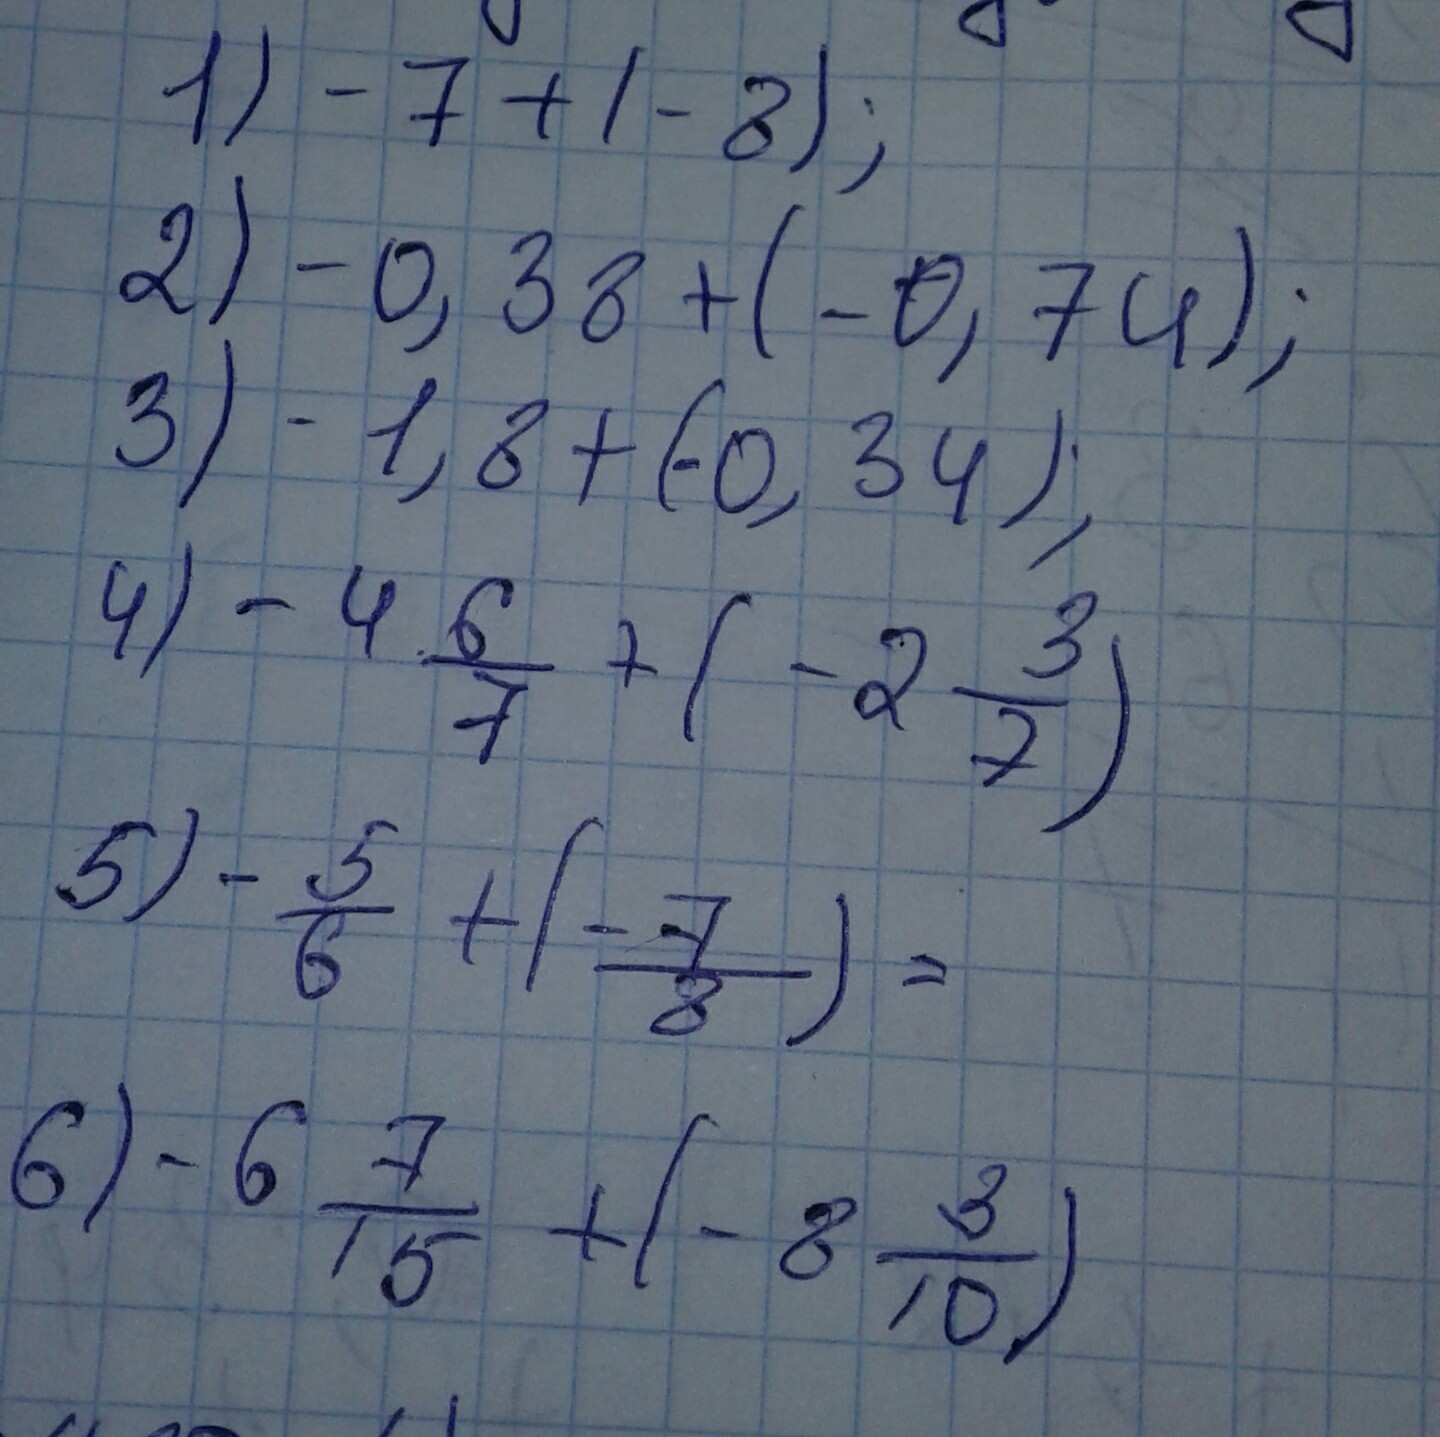 1) -7+(-8);
2) -0,38+(-0,74);
3) -1,8+(-0,34);
4) -4 6/7 + (-2 3/7)
5) -5/6 + (-7/8) =
6) -6 7/15 + (-8 3/10)